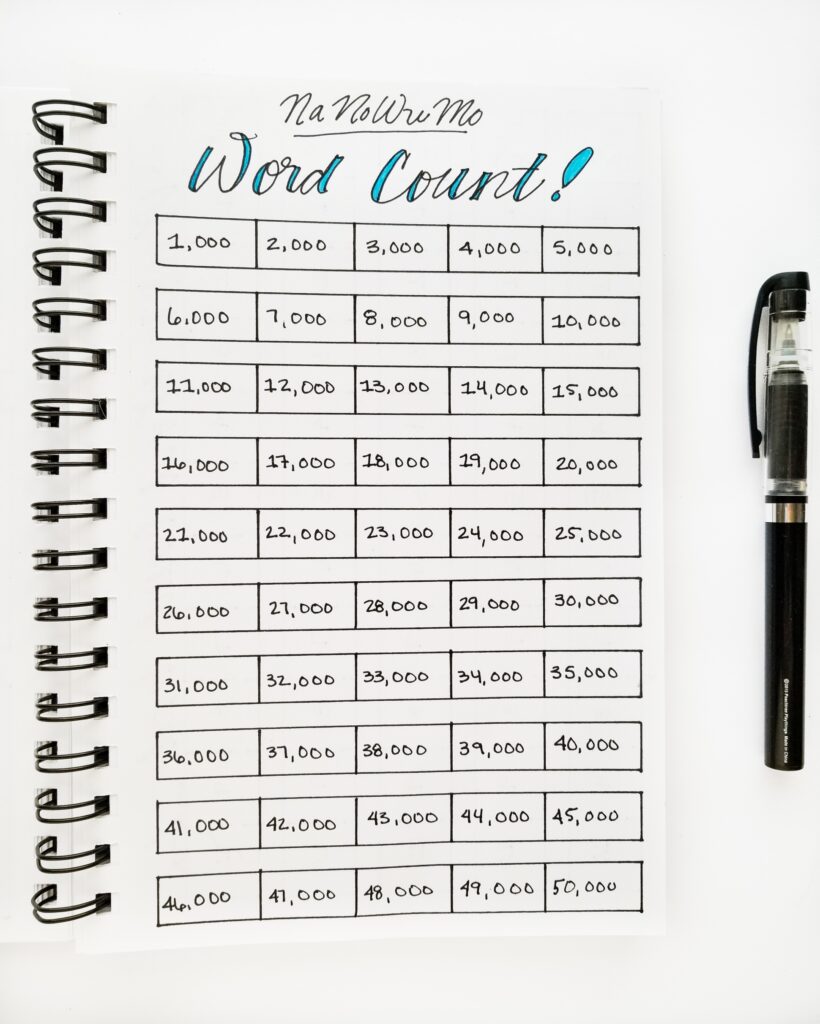 NaNoWriMo
Word Count!
1,000 2,000 3,000 4,000 5,000
6,000 7,000 8,000 9,000 10,000
11,000 12,000 13,000 14,000 15,000
16,000 17,000 18,000 19,000 20,000
21,000 22,000 23,000 24,000 25,000
26,000 27,000 28,000 29,000 30,000
31,000 32,000 33,000 34,000 35,000
36,000 37,000 38,000 39,000 40,000
41,000 42,000 43,000 44,000 45,000
46,000 47,000 48,000 49,000 50,000